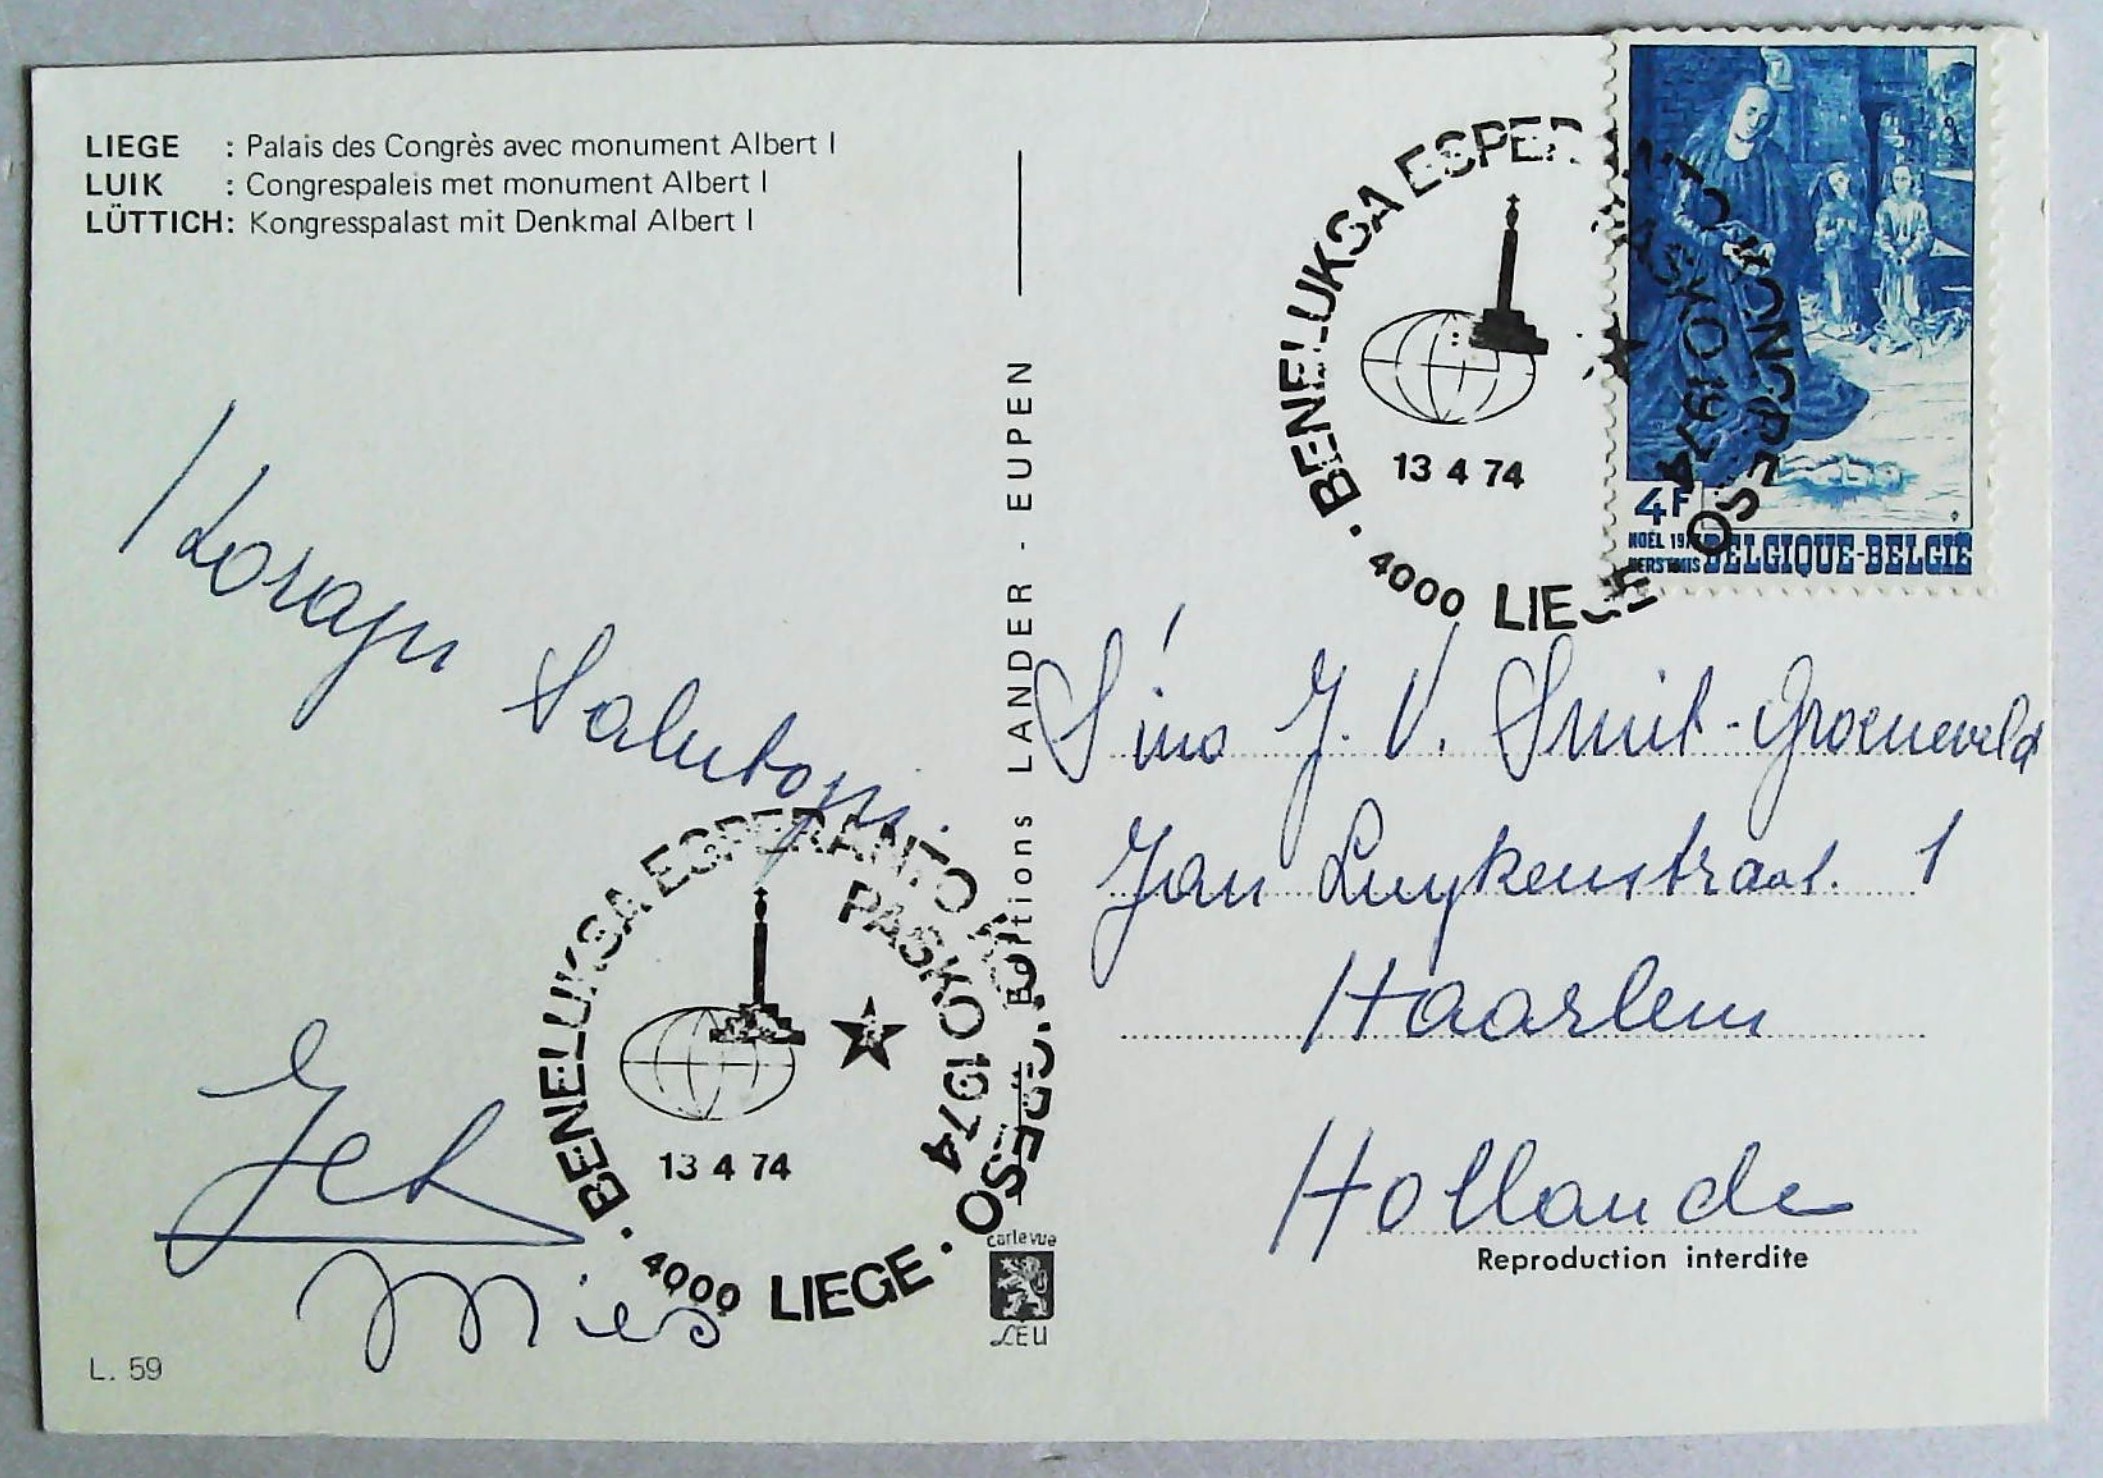 LIEGE : Palais des Congrès avec monument Albert I
LUIK : Congrespaleis met monument Albert I
LÜTTICH: Kongresspalast mit Denkmal Albert I
Korajn
Salutojn.
Jet
Mies
L. 59
Editions LANDER - EUPEN
BENELUKSA ESPERANTO KONGRESO
PASKO 1974
13 4 74
4000 LIEGE
carte vue
LEU
BENELUKSA ESPERANTO KONGRESO
PASKO 1974
13 4 74
4000 LIEGE
4F
NOËL 197
KERSTMIS BELGIQUE-BELGIË
S'ino J. V. Smit-Groeneveld
Jan Luykenstraat. 1
Haarlem
Hollande
Reproduction interdite